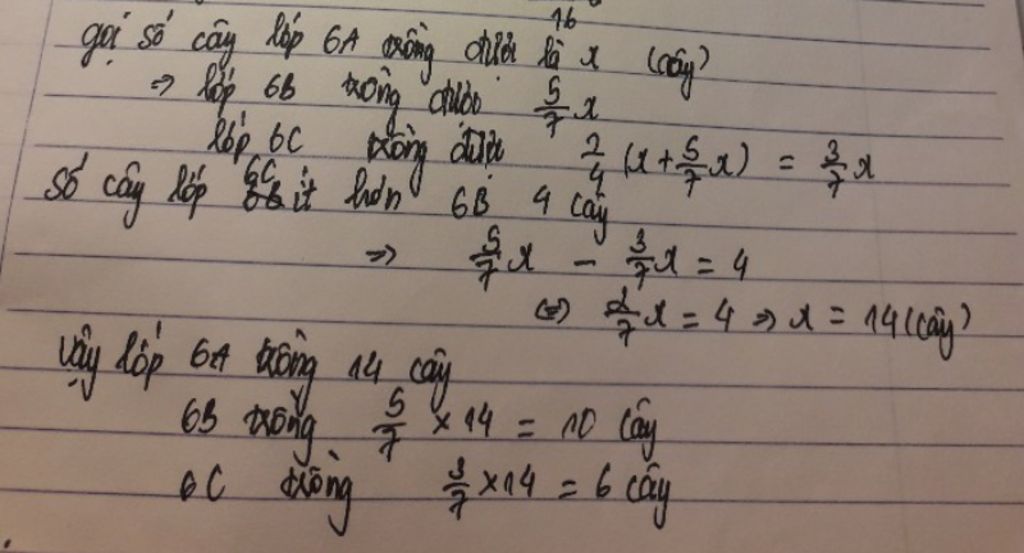 16
gọi số cây lớp 6A trồng được là x (cây)
=> lớp 6B trồng được 5/7 x
lớp 6C trồng được 2/4 (x + 5/7 x) = 3/7 x
số cây lớp 6C ít hơn 6B 4 cây
=> 5/7 x - 3/7 x = 4
(=) 2/7 x = 4 => x = 14 (cây)
Vậy lớp 6A trồng 14 cây
6B trồng 5/7 × 14 = 10 cây
6C trồng 3/7 × 14 = 6 cây